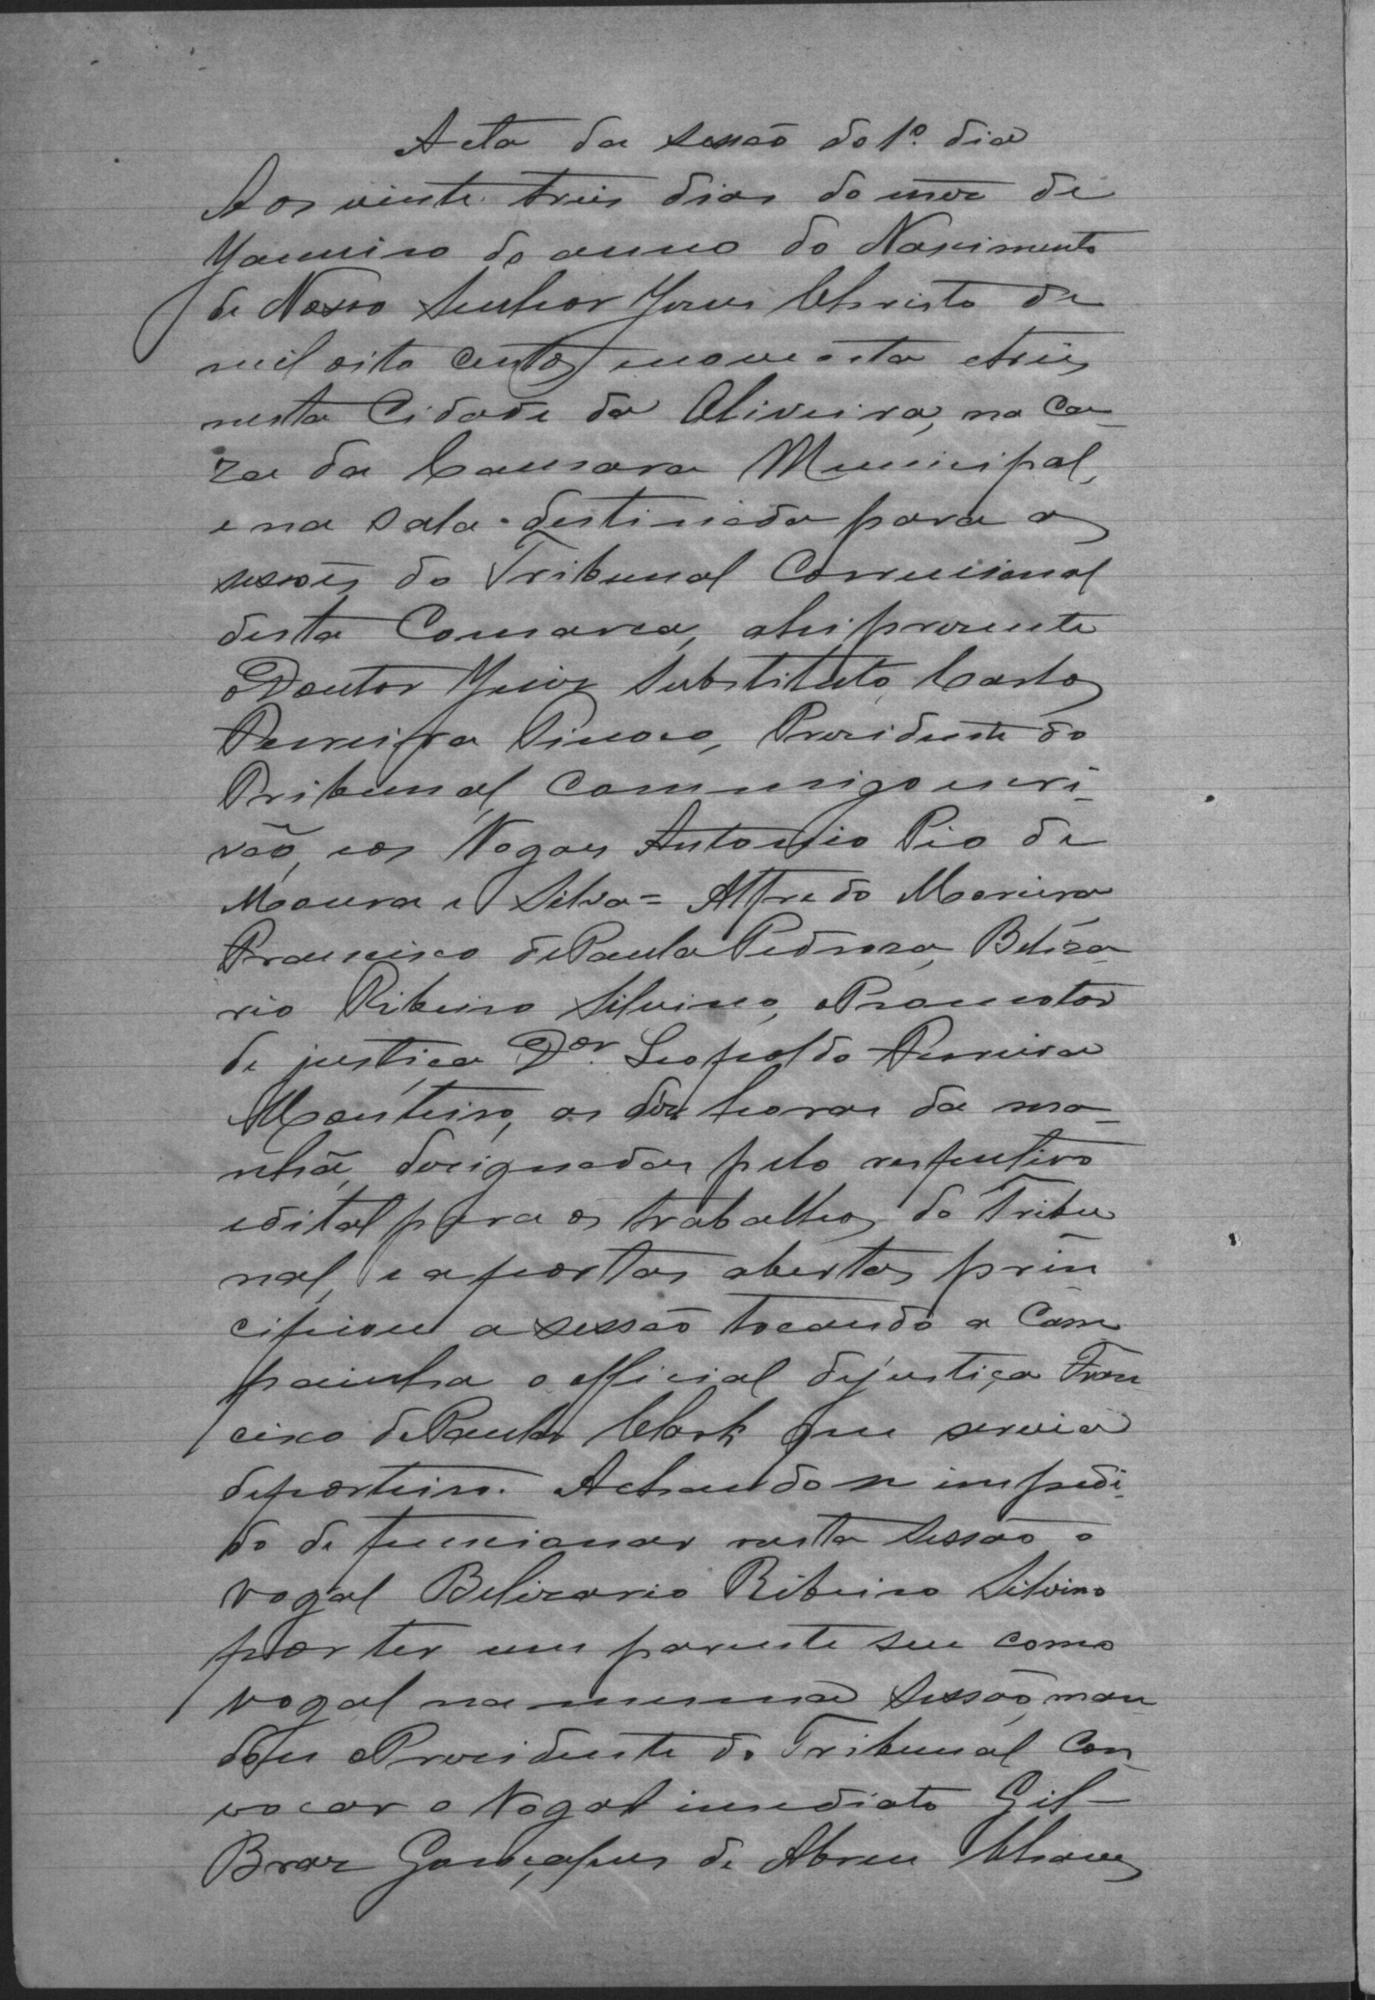 Acta da sessão do 1º. dia
Aos vinte treis dias do mez de
Janneiro do anno do Nascimento
de Nosso Senhor Jesus Christo de
mil oito centos noventa e treis
nesta Cidade da Oliveira, na Ca-
za da Camara Municipal,
e na sala destinada para as
sessões do Tribunal Correicional
desta Comarca, ahi prezente
o Doutor Juiz Substituto, Carlos
Ferreira Tinoco, Prezidente do
Tribunal, commigo escri-
vão, e os Vogaes Antonio Pio de
Moura e Silva = Alfredo Moreira
Francisco de Paula Pedroza, Beliza
rio Ribeiro Silvino, o Promotor
de justiça Dor. Leopoldo Ferreira
Monteiro, as dez horas da ma-
nhã, dezignadas pelo respectivo
edital para os trabalhos do Tribu
nal, e a portas abertas prin
cipiou a sessão tocando a Cam
painha o official de justiça Fran
cisco de Paula Clark que servia
de porteiro. Achando se impedi-
do de funcionar nesta sessão o
vogal Belizario Ribeiro Silvino
por ter um parente seu como
vogal na mesma sessão, man
dou o Prezidente do Tribunal Con
vocar o Vogal immediato Gil-
Braz Gonçalves de Abreu Chaves